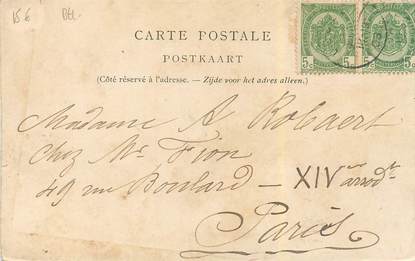 15 € Bel.
CARTE POSTALE
POSTKAART
(Côté réservé à l'adresse. – Zijde voor het adres alleen.)
5c 5c 5c
Madame A Robaert
chez Mr Fion
49 rue Boulard – XIVme arrodt
Paris